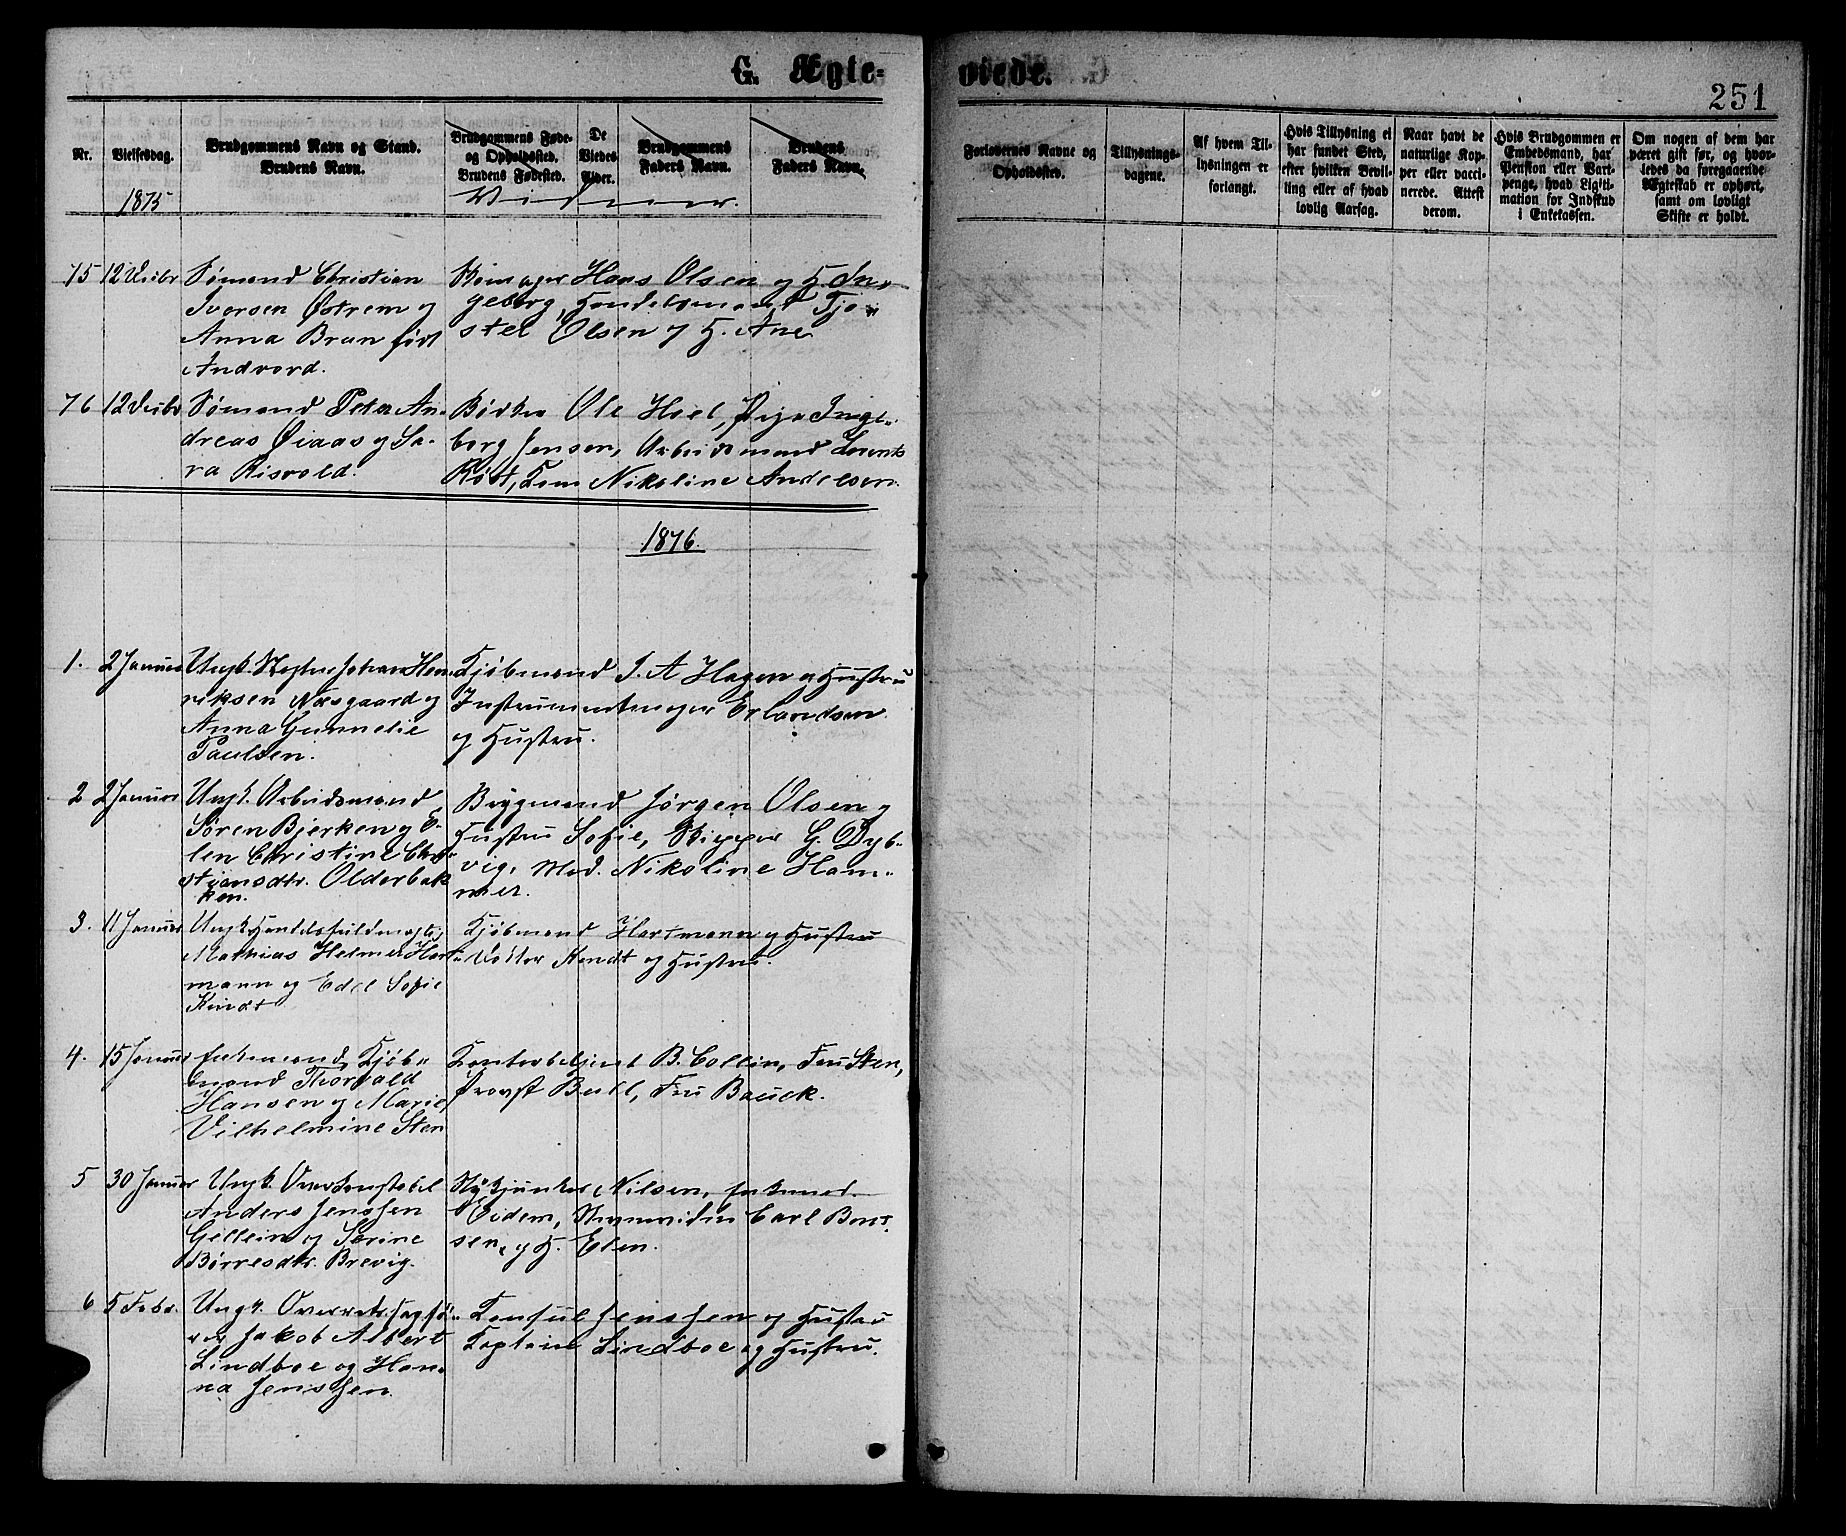 G. Ægte-
viede.
251
Nr.
Vielsesdag.
Brudgommens Navn og Stand.
Brudens Navn.
Brudgommens Føde-
og Opholdssted.
Brudens Fødested.
De
Viedes
Alder.
Brudgommens
Faders Navn.
Brudens
Faders Navn.
Forlovernes Navne og
Opholdssted.
Tillysnings-
dagene.
Af hvem Til-
lysningen er
forlangt.
Hvis Tillysning ei
har fundet Sted,
efter hvilken Bevil-
ling eller af hvad
lovlig Aarsag.
Naar havt de
naturlige Kop-
per eller vacci-
nerede. Attest
derom.
Hvis Brudgommen er
Embedsmand, har
Pension eller Vart-
penge, hvad Ligiti-
mation for Indskud
i Enkekassen.
Om nogen af dem har
været gift før, og hvor-
ledes da foregaaende
Ægteskab er ophørt,
samt om lovligt
Skifte er holdt.
1875
Vidner.
75 12 Decbr Sømand Christian
Iversen Østrem og
Anna Brun født
Andvord.
Hans Olsen og H. In-
geborg, Handelsmand Tjo-
stel Olsen og H. Ane
76 12 Decbr Sømand Peter An-
dreas Øiaas og Sa-
ra Risvold.
Bødker Ole Hoel, Pige Inge-
borg Jensen, Arbeidsmand Lorents
Röst, Kone Nikoline Andersen.
1876.
1. 2 Januar Ungk. Johan Hen-
riksen Næsgaard og
Anna Gunnelie
Paulsen.
Kjøbmand J. A Hagen og Hustru
Instrumentmager Erlandsen
og Hustru.
2 2 Januar Ungk. Arbeidsmand
Søren Bjerken og E-
len Christine Chri-
stiansdtr. Olderbak-
ken.
Bygmand Jørgen Olsen og
Hustru Sofie, Skipper G. Dyb-
vig, Mad. Nikoline Ham-
mer.
3. 11 Januar Ungk. Handelsfuldmægtig
Mathias Helmer Hart-
mann og Edel Sofie
Kindt
Kjøbmand Hartmann og Hustru
Doktor Kindt og Hustru.
4. 15 Januar Enkemand Kjøb-
mand Thorvald
Hansen og Marie
Vilhelmine Sten
Kontorbetjent B. Collin, Fru Sten,
Provst Bull, Fru Bauck.
5 30 Januar Ungk. Overkonstabel
Anders Jenssen
Gellein og Serine
Børresdtr. Brevig.
Styrkjunker Nilsen, Enkemad.
Eidem, Carl Bent-
sen, og H. Elen.
6 5 Febr. Ungk. Overretssagfø-
rer Jakob Albert
Lindboe og Han-
na Jenssen.
Konsul Jenssen og Hustru
Kaptein Lindboe og Hustru.